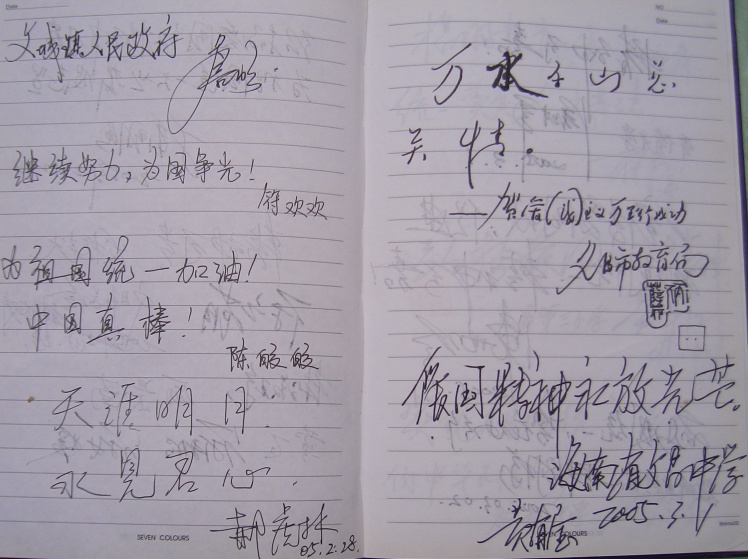 文城镇人民政府
继续努力，为国争光！
符欢欢
为祖国统一加油！
中国真棒！
陈皎皎
天涯明月
永见君心
05.2.28.
SEVEN COLOURS
Date
NO.
Date
万水千山总
关情。
文昌市教育局
爱国精神永放光芒。
海南省文昌中学
2005.3.1